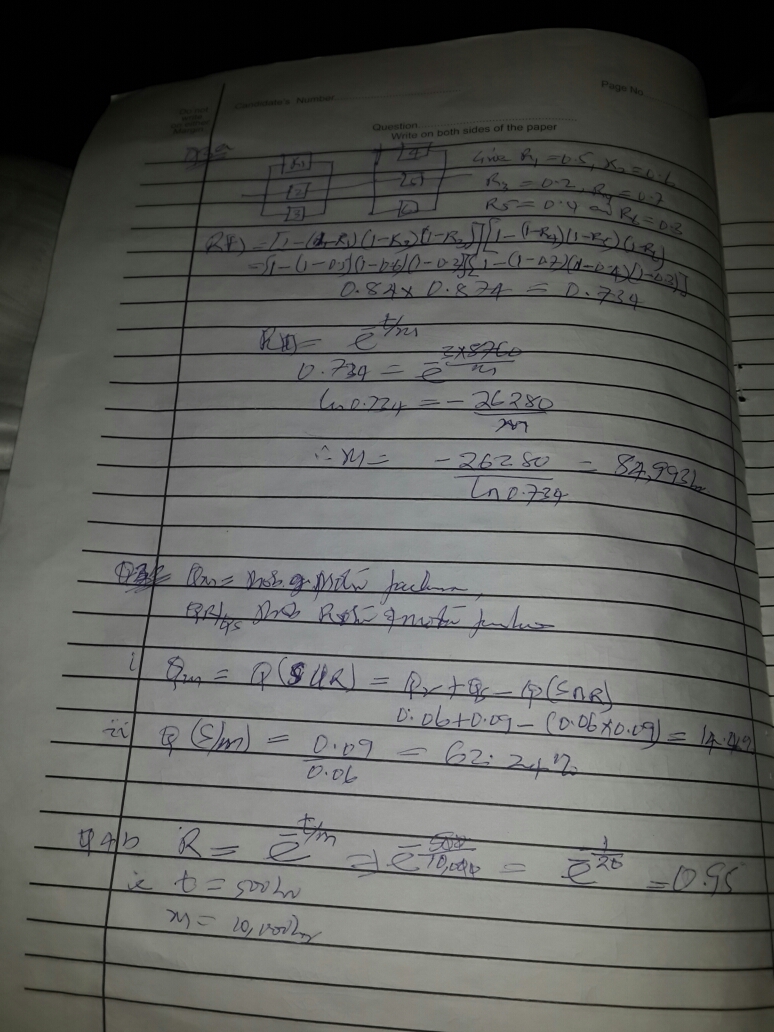 Do not write on either Margin
Candidate's Number
Page No
Question
Write on both sides of the paper
R1
2
3
4
5
6
Given R1 = 0.5, R2 = 0.6
R3 = 0.2, R4 = 0.7
R5 = 0.4 and R6 = 0.3
R(t) = [1-(1-R1)(1-R2)(1-R3)][1-(1-R4)(1-R5)(1-R6)]
= [1-(1-0.5)(1-0.6)(1-0.2)][1-(1-0.7)(1-0.4)(1-0.3)]
0.84 x 0.874 = 0.734
R(t) = e^-t/m
0.734 = e^-3x8760/m
ln0.734 = - 26280/m
∴ M = -26280/ln0.734 = 84,993hr
Qm = Prob. of motor failure,
Prob Rotor motor failure
i Qm = Q(SUR) = Qr + Qs - Q(S∩R)
0.06+0.09-(0.06x0.09) = 14.
ii Q(S/m) = 0.09/0.06 = 62.24%
Q4b R = e^-t/m = e^-500/10,000 = e^-1/20 = 0.95
ie t = 500hr
m = 10,000hr